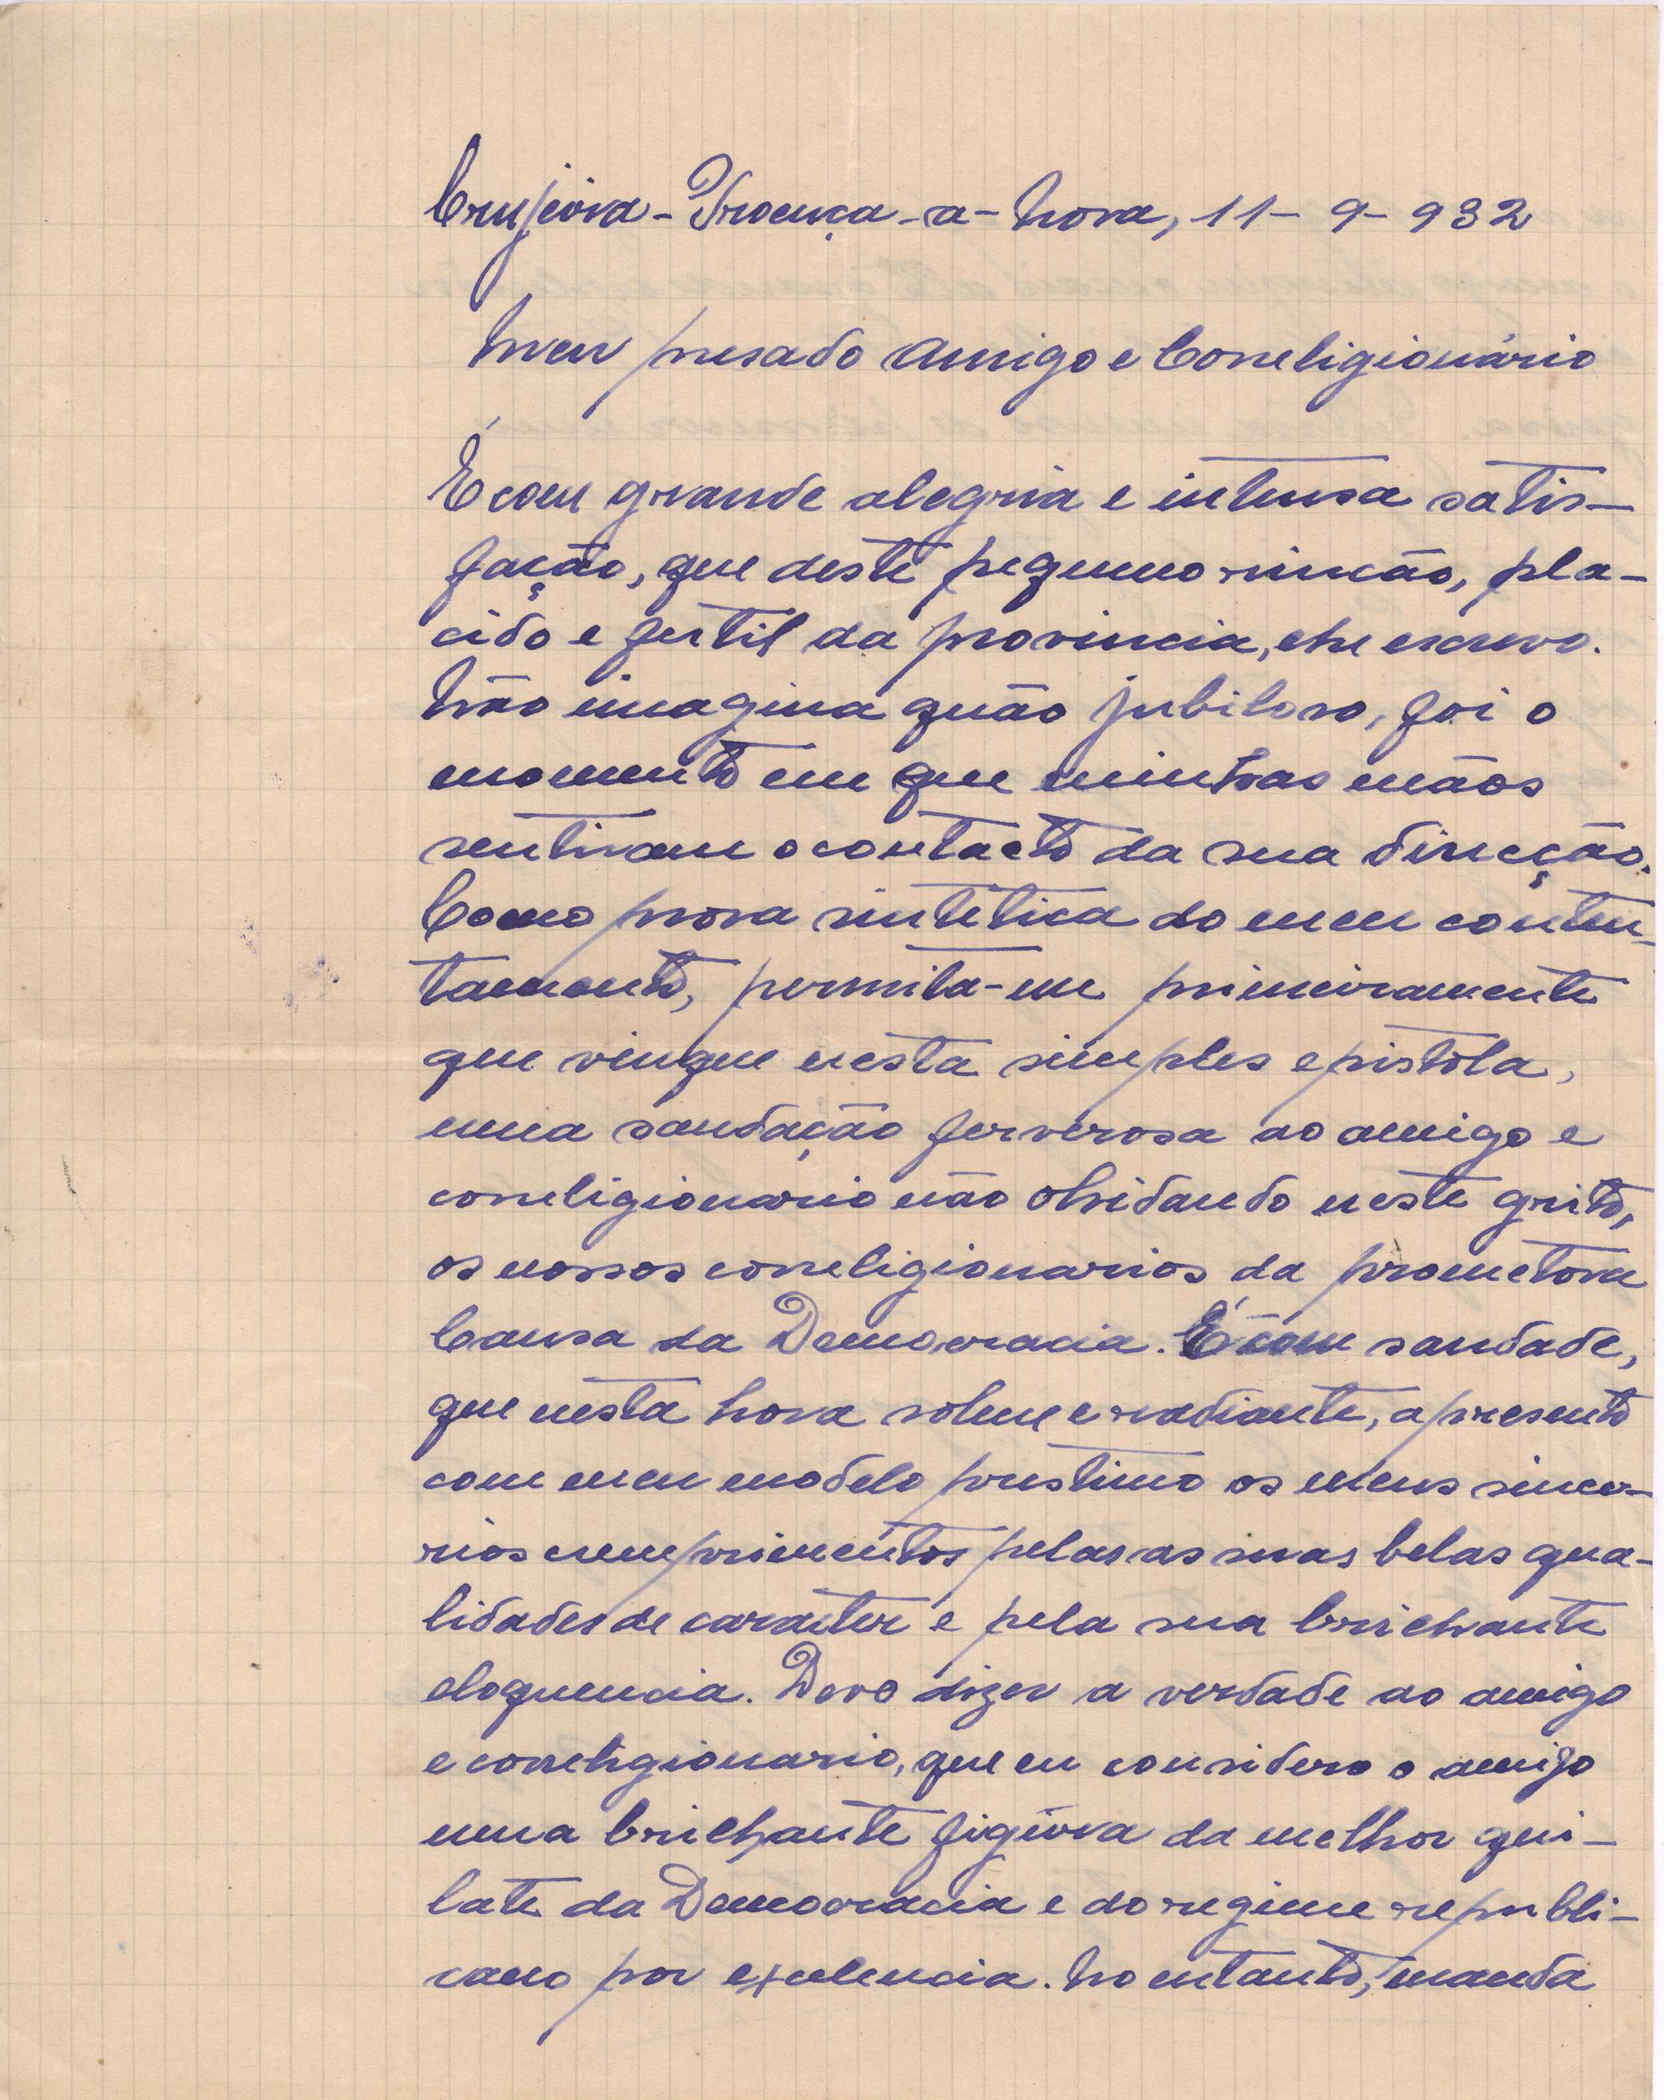 Proença-a-Nova, 11-9-932
Meu presado Amigo e Correligionário
É com grande alegria e intensa satis-
fação, que deste pequeno rincão, pla-
cido e fertil da provincia, lhe escrevo.
Não imagina quão jubiloso, foi o
momento em que minhas mãos
sentiram o contacto da sua direcção.
Como prova sintetica do meu conten-
tamento, permita-me primeiramente
que vinque nesta simples epistola,
uma saudação ferverosa ao amigo e
correligionario não olvidando neste grito,
os nossos correligionarios da prometora
Causa da Democracia. É com saudade,
que nesta hora solene e radiante, apresento
com meu modelo prestimo os meus since-
rios cumprimentos pelas as suas belas qua-
lidades de caracter e pela sua brilhante
eloquencia. Devo dizer a verdade ao amigo
e correligionario, que eu considero o amigo
uma brilhante figura da melhor qui-
late da Democracia e do regime republi-
cano por excelencia. No entanto, manda